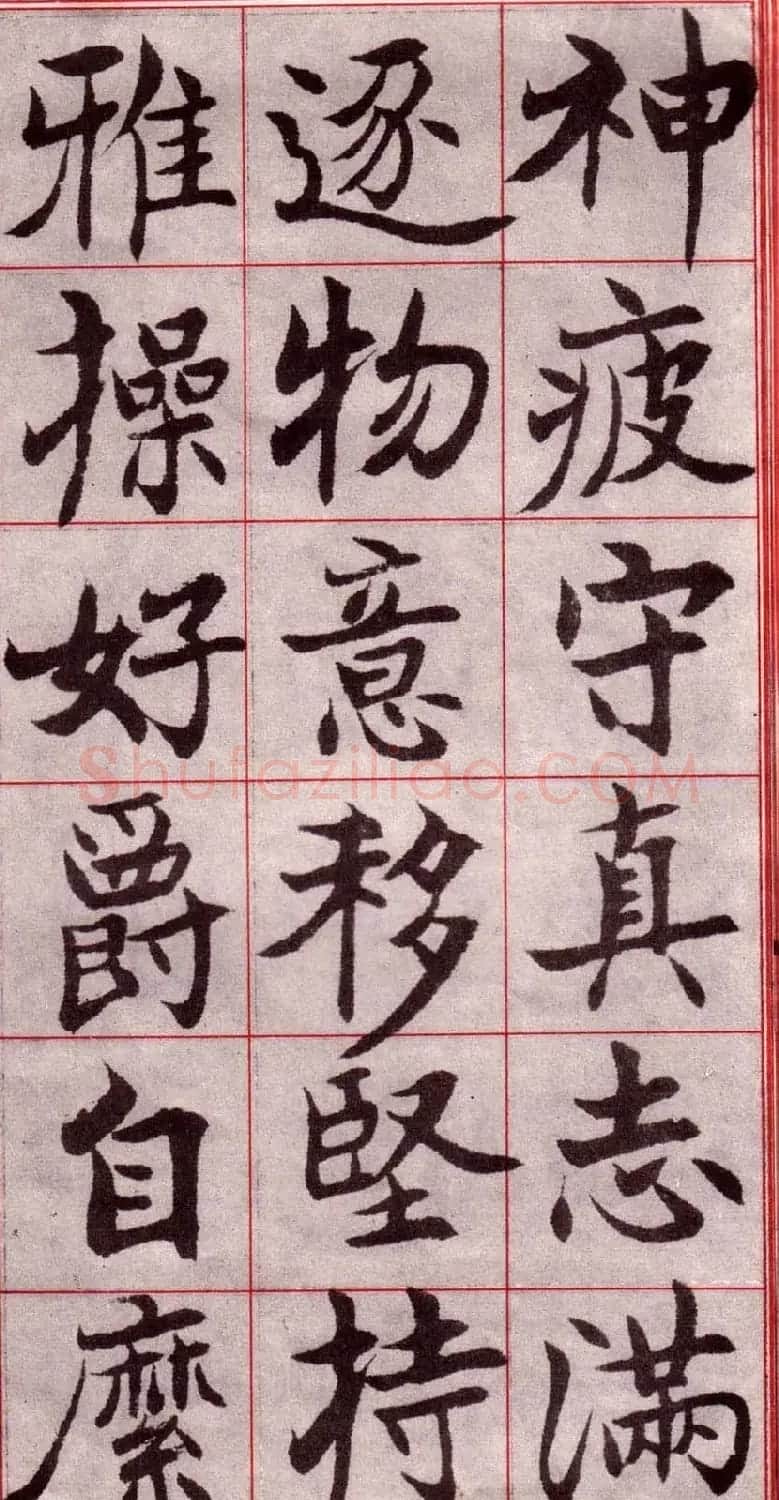 神疲守真志满
逐物意移堅持
雅操好爵自縻
Shufaziliao.COM